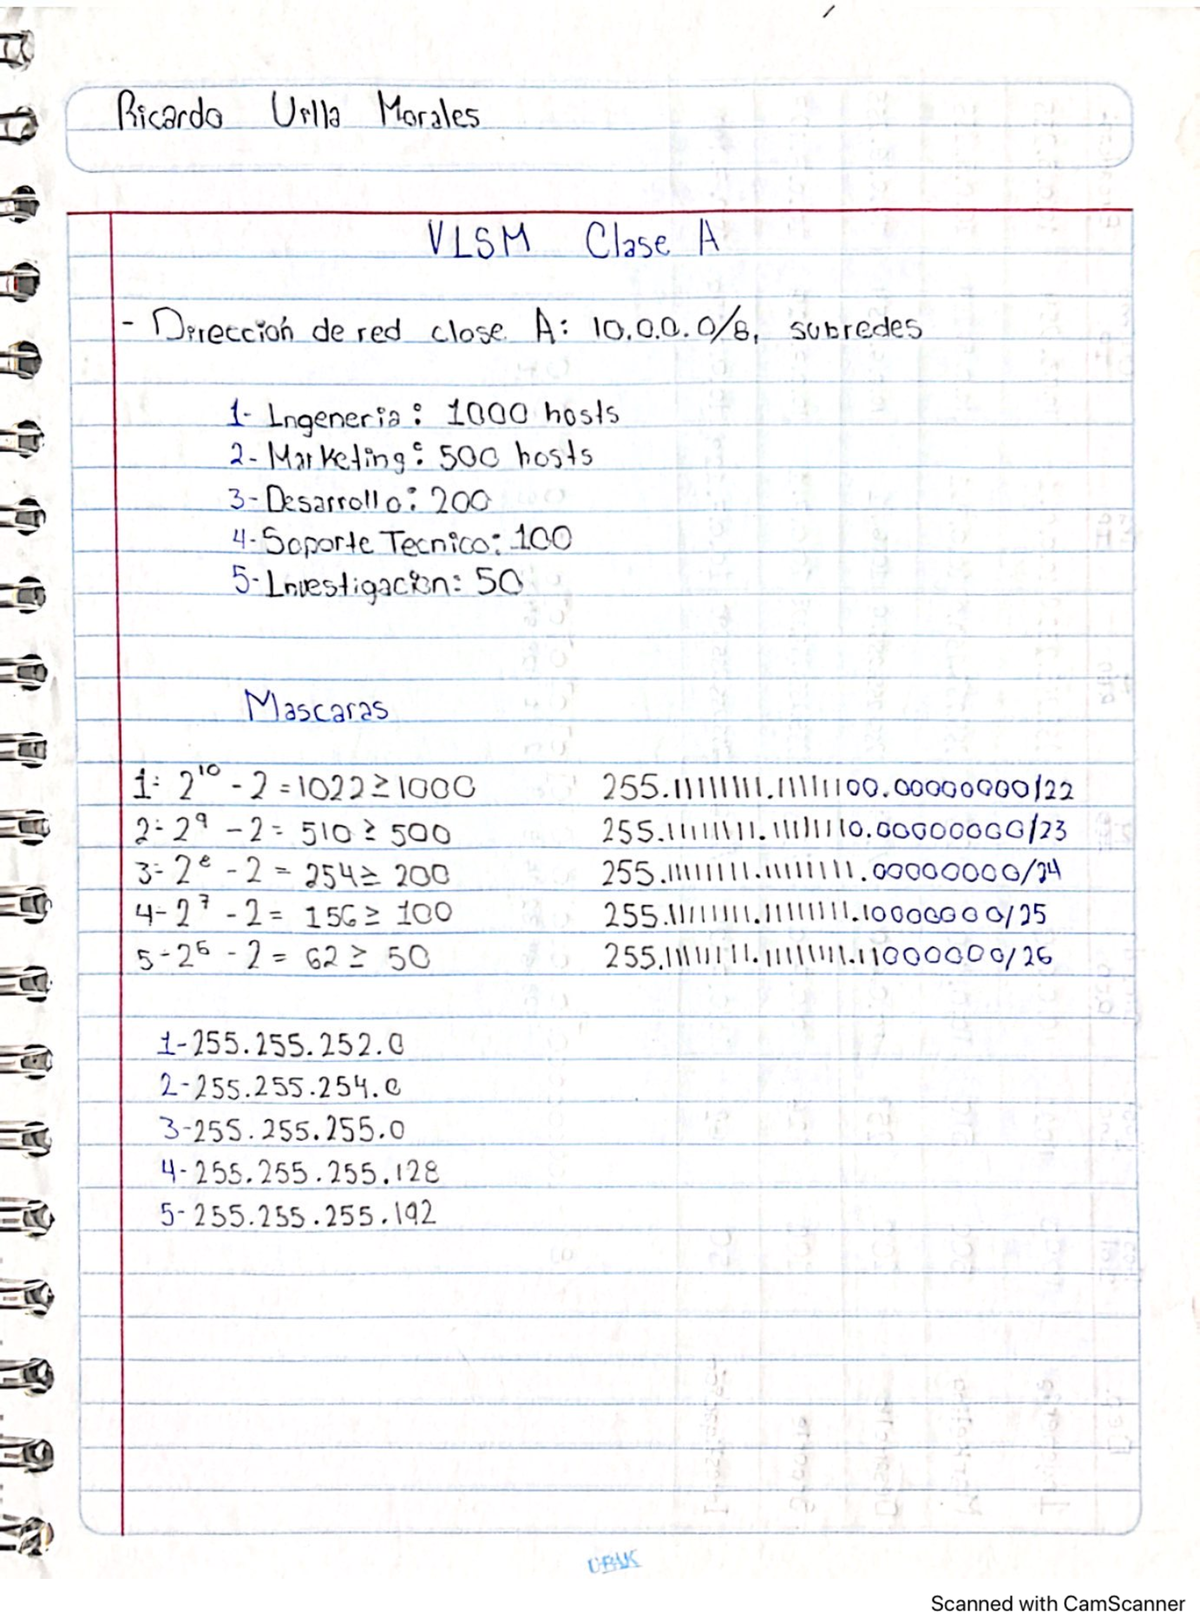 Ricardo Urlla Morales
VLSM Clase A
- Dirección de red clase A: 10.0.0.0/8, subredes
1- Ingeneria: 1000 hosts
2- Marketing: 500 hosts
3- Desarrollo: 200
4- Soporte Tecnico: 100
5- Investigacion: 50
Mascaras
1- 2^10 - 2 = 1022 ≥ 1000 255.11111111.11111100.00000000/22
2- 2^9 - 2 = 510 ≥ 500 255.11111111.11111110.00000000/23
3- 2^8 - 2 = 254 ≥ 200 255.11111111.11111111.00000000/24
4- 2^7 - 2 = 156 ≥ 100 255.11111111.11111111.10000000/25
5- 2^6 - 2 = 62 ≥ 50 255.11111111.11111111.11000000/26
1- 255.255.252.0
2- 255.255.254.0
3- 255.255.255.0
4- 255.255.255.128
5- 255.255.255.192
Scanned with CamScanner